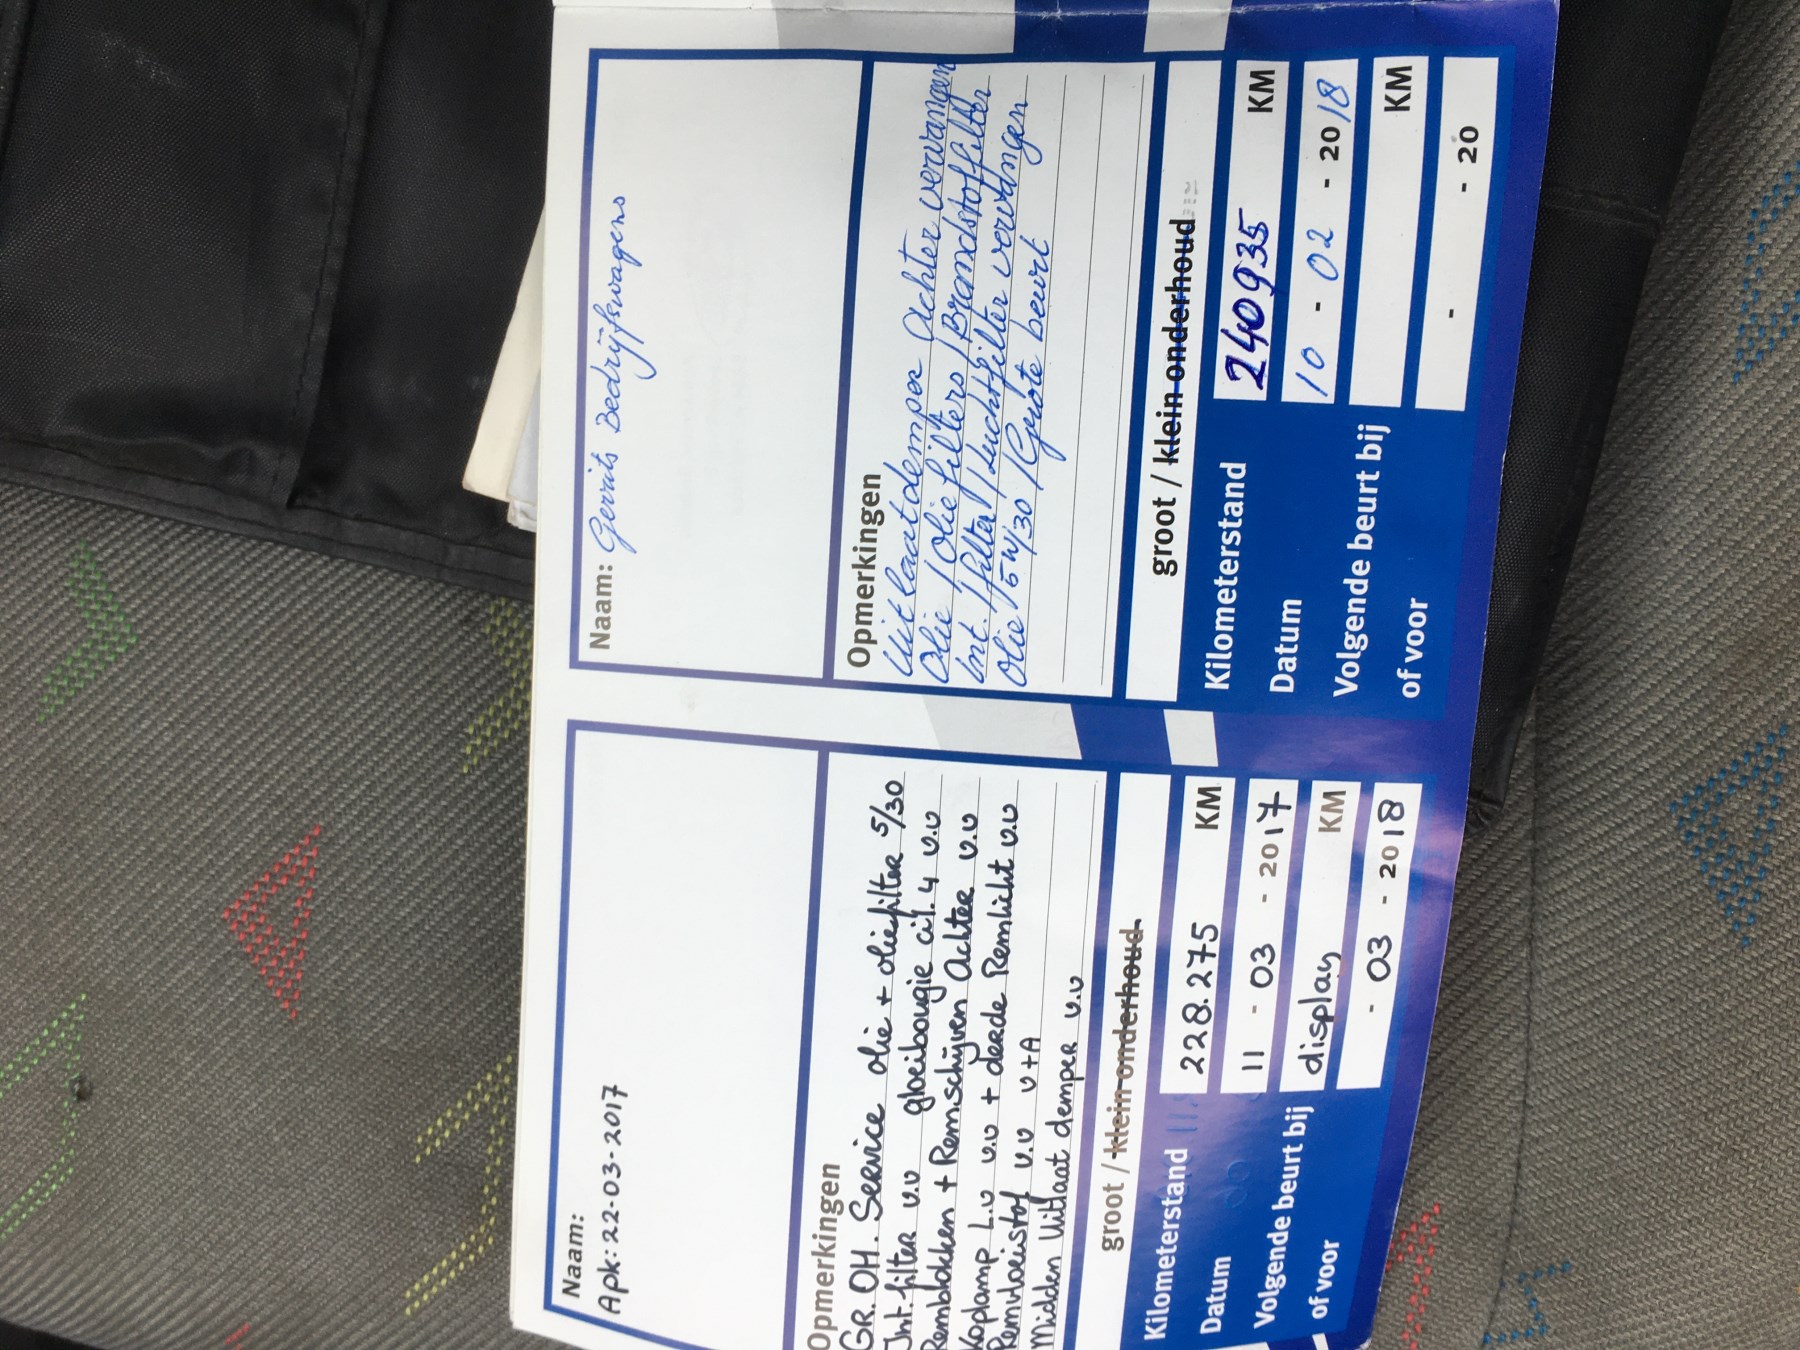 Naam:
Apk: 22-03-2017
Opmerkingen
GR. OH. Service olie + oliefilter 5/30
Int. filter v.v gloeibougie cil. 4 v.v
Remblokken + Remschijven Achter v.v
Koplamp L.v v.v + derde Remlicht v.v
Remvloeistof v.v v+A
Midden Uitlaat demper v.v
groot / klein onderhoud
Kilometerstand 228.275 KM
Datum 11 - 03 - 2017
Volgende beurt bij display KM
of voor - 03 - 2018
Naam: Gerrits Bedrijfswagens
Opmerkingen
Uitlaatdemper Achter vervangen
Olie / Oliefilters / Brandstoffilter
Int. / filter / Luchtfilter vervangen
Olie 5w/30 / Grote beurt
groot / klein onderhoud
Kilometerstand 240935 KM
Datum 10 - 02 - 2018
Volgende beurt bij KM
of voor - - 20